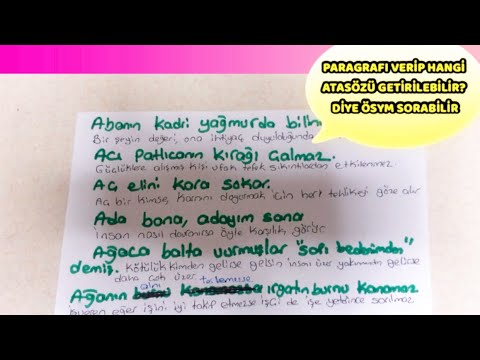 PARAGRAFI VERİP HANGİ
ATASÖZÜ GETİRİLEBİLİR?
DİYE ÖSYM SORABİLİR
Abanın kadri yağmurda bilin
Bir şeyin değeri, ona ihtiyaç duyulduğunda
Acı Patlıcanın kırağı Çalmaz.
Güçlüklere alışmış kişi ufak tefek sıkıntılardan etkilenmez.
Aç elini kora sokar.
Aç bir kimse, karnını doyurmak için her tehlikeyi göze alır
Ada bana, adayım sana
İnsan nasıl davranırsa öyle karşılık görür.
Ağaca balta vurmuşlar "sapı bedenimden"
demiş. Kötülük kimden gelirse gelsin insanı üzer yakınından gelirse
daha çok üzer
alnı terlemezse
Ağanın burnu Kanamazsa ırgatın burnu Kanamaz
İşveren eğer işini iyi takip etmezse işçi de işe yeterince sarılmaz